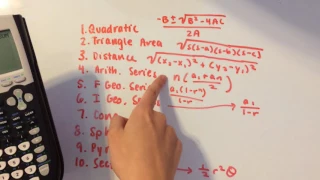 1. Quadratic -B ± √B² - 4AC / 2A
2. Triangle Area √s(s-a)(s-b)(s-c)
3. Distance √(x₂-x₁)² + (y₂-y₁)²
4. Arith. Series n(a₁+an / 2)
5. F Geo. Series a₁(1-rⁿ) / 1-r
6. I Geo. S → a₁ / 1-r
7. Con
8. Sph
9. Pyr
10. Sec → ½r²